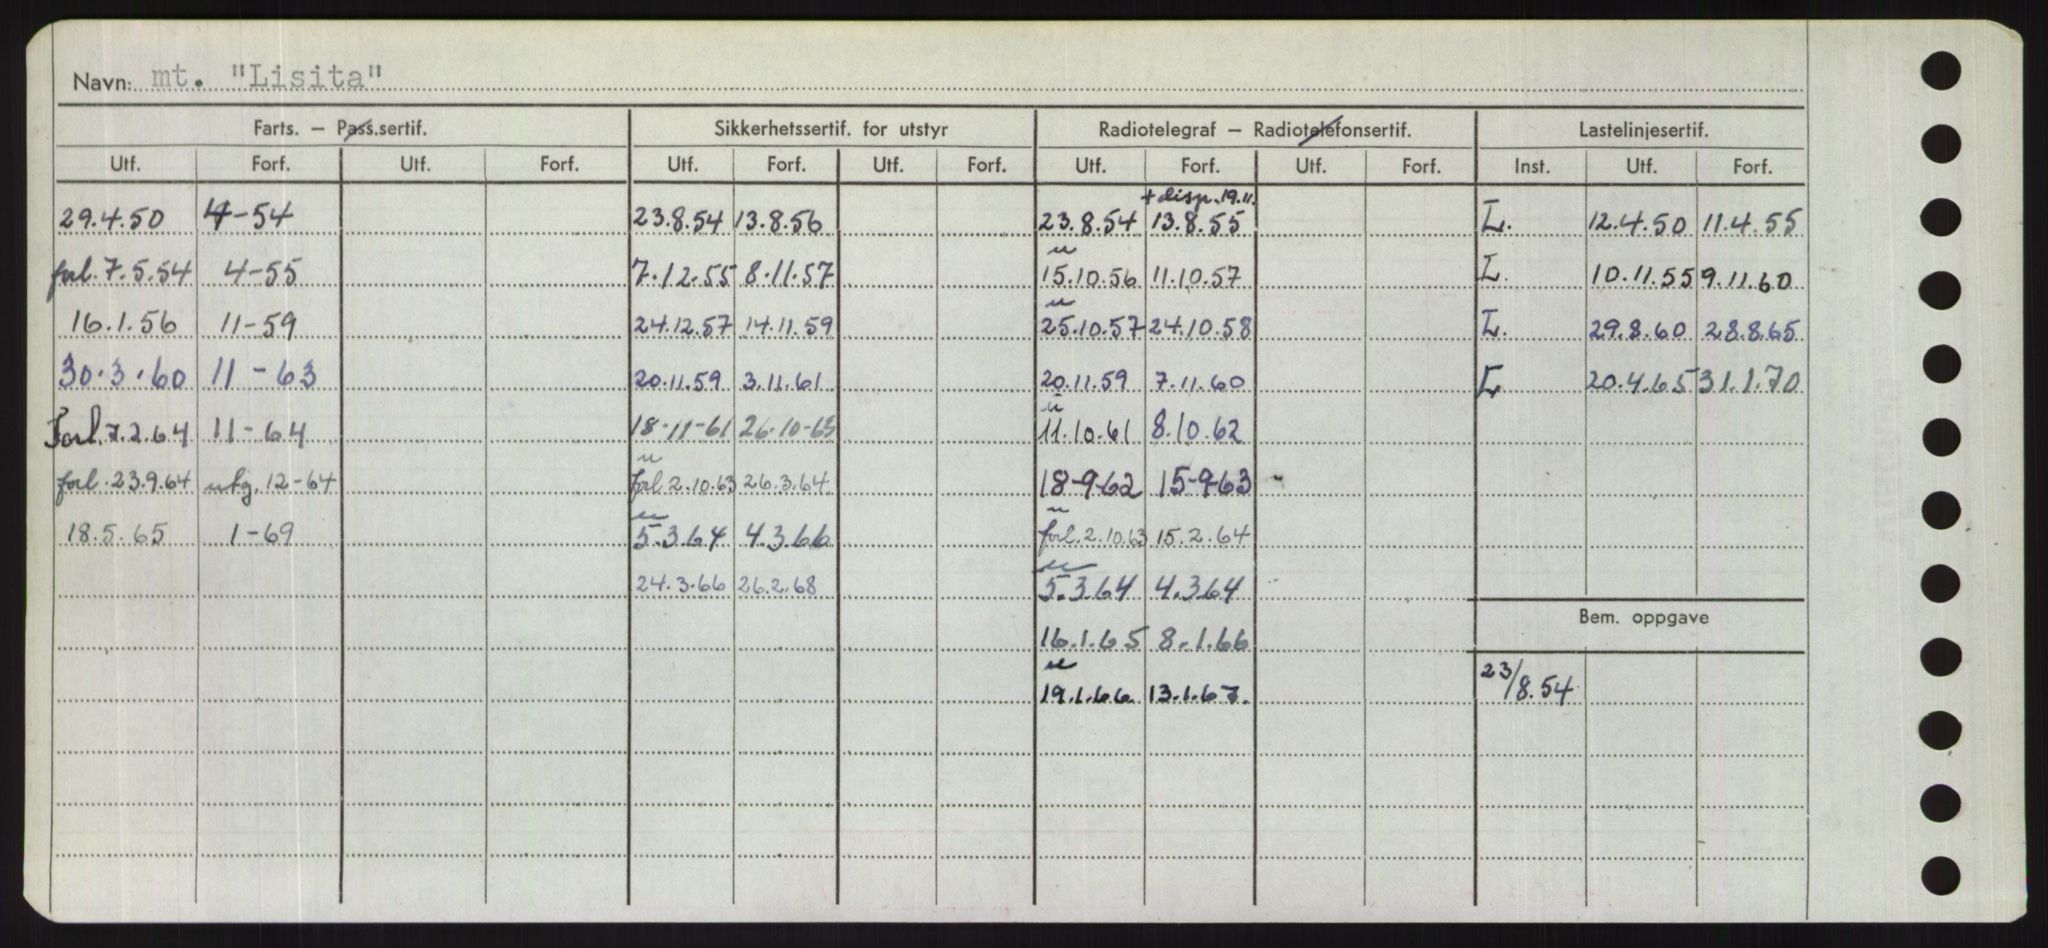 Navn: mt. "Lisita"
Farts. – Pass.sertif. Sikkerhetssertif. for utstyr Radiotelegraf – Radiotelefonsertif. Lastelinjesertif.
Utf. Forf. Utf. Forf. Utf. Forf. Utf. Forf. Utf. Forf. Utf. Forf. Inst. Utf. Forf.
+ disp. 19.11.
29.4.50 4-54 23.8.54 13.8.56 23.8.54 13.8.55 L. 12.4.50 11.4.55
u
forl. 7.5.54 4-55 7.12.55 8.11.57 15.10.56 11.10.57 L. 10.11.55 9.11.60
u
16.1.56 11-59 24.12.57 14.11.59 25.10.57 24.10.58 L. 29.8.60 28.8.65
30.3.60 11-63 20.11.59 3.11.61 20.11.59 7.11.60 L 20.4.65 31.1.70
u
Forl. 7.2.64 11-64 18-11-61 26-10-63 11.10.61 8.10.62
u
forl. 23.9.64 utg. 12-64 forl 2.10.63 26.3.64 18-9-62 15-9-63
u u
18.5.65 1-69 5.3.64 4.3.66 forl. 2.10.63 15.2.64
u
24.3.66 26.2.68 5.3.64 4.3.64
Bem. oppgave
16.1.65 8.1.66
u
23/8.54
19.1.66 13.1.67.